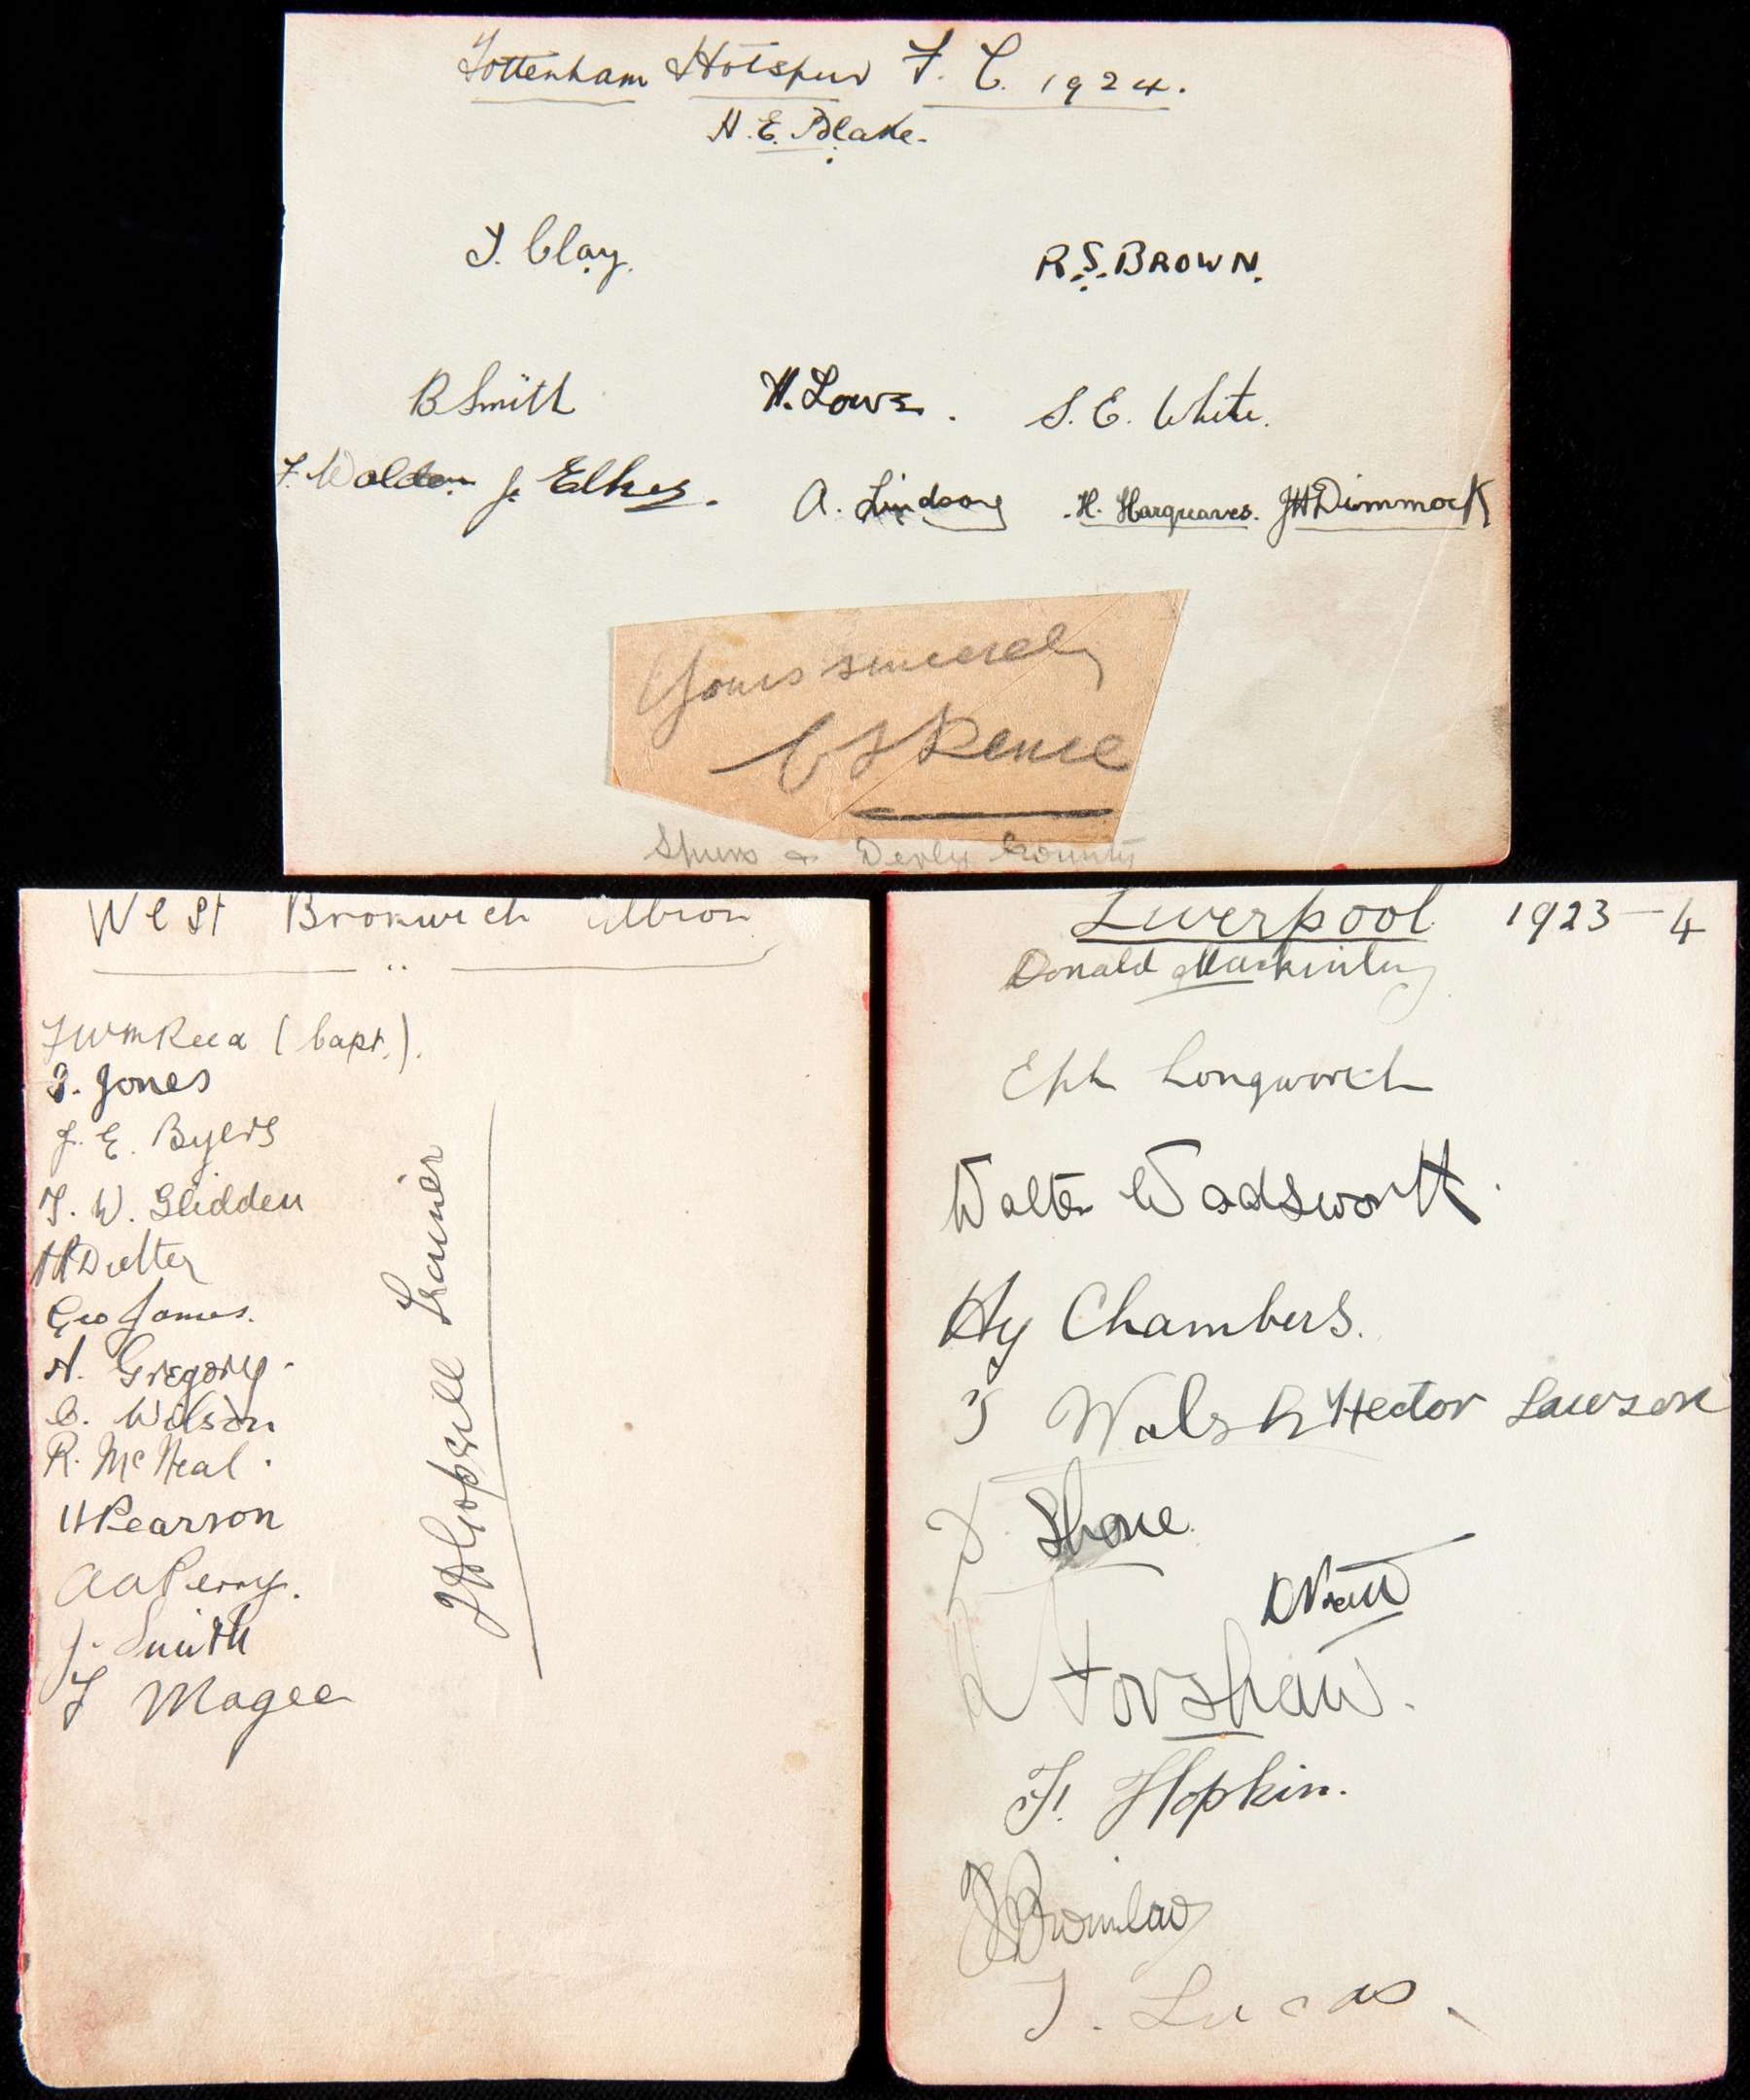 Tottenham Hotspur F. C. 1924.
H. E. Blake.
T. Clay. R. S. BROWN.
B Smith H. Lowe. S. E. White.
F. Walden J. Elkes. A. Lindsay H. Hargreaves. JH Dimmock
Yours sincerely
C T Rance
Spurs & Derby County
West Bromwich Albion
FW M Reed (Capt.).
S. Jones
J. E. Byers
T. W. Glidden
H Dutton
Geo James.
H. Gregory.
C. Wilson
R. McNeal.
H Pearson
A A Perry.
J. Smith
T Magee
Trainer
Liverpool 1923-4
Donald Mackinlay
Eph Longworth
Walter Wadsworth.
Hy Chambers.
J Walsh Hector Lawson
D Shone
D Pratt
R Forshaw.
F. Hopkin.
T Bromilow
T. Lucas.